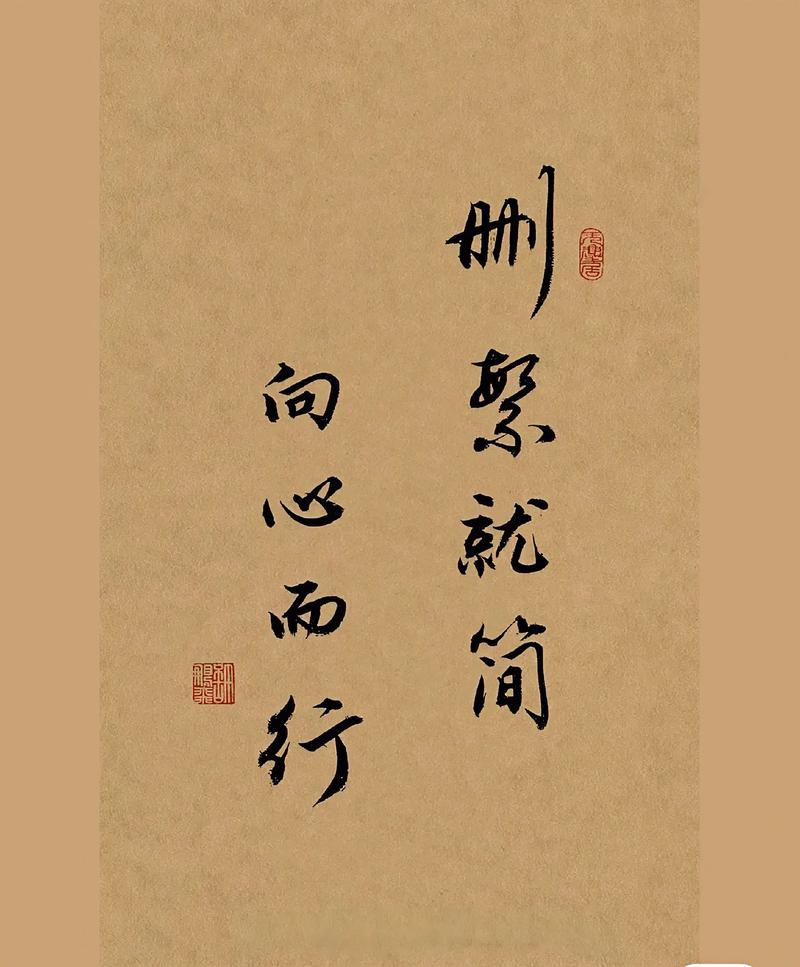 删繁就简
向心而行